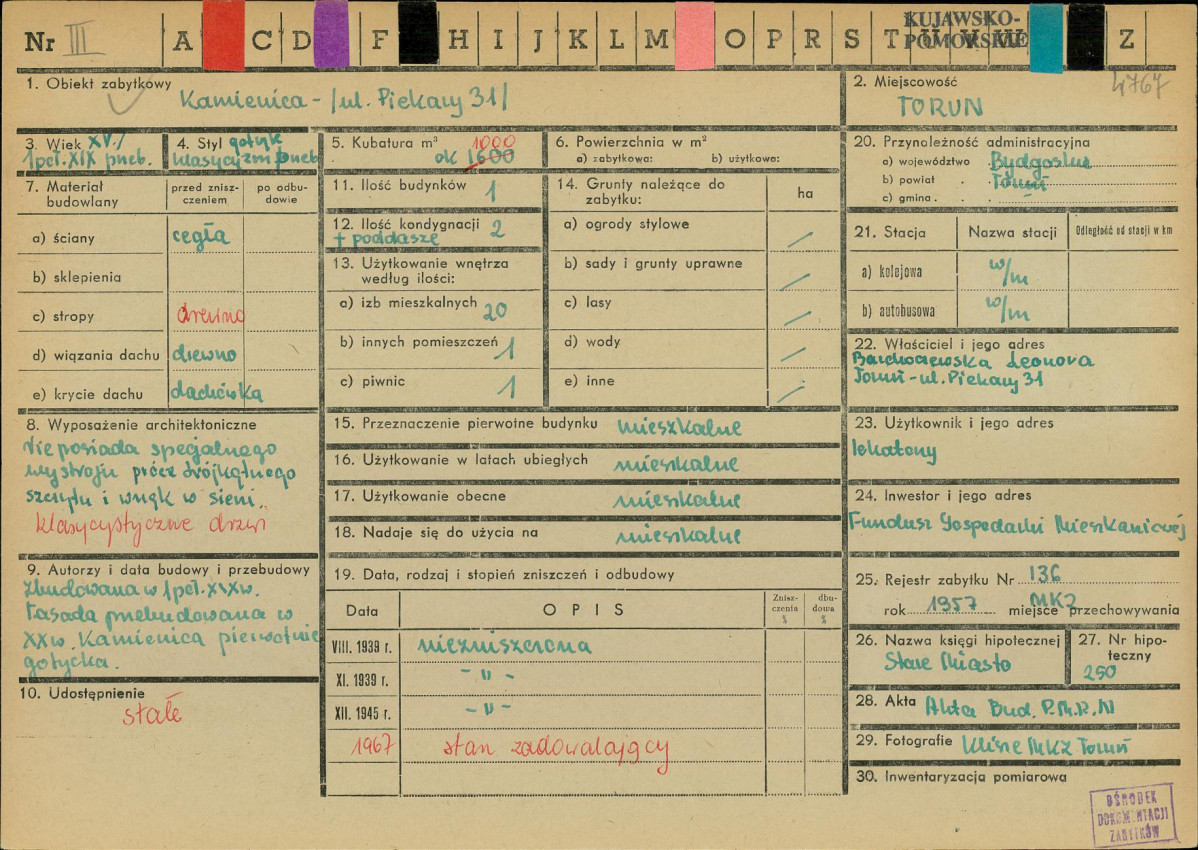 Nr III A C D F H I J K L M O P R S T U V W Z
KUJAWSKO-
POMORSKIE
4767
1. Obiekt zabytkowy
Kamienica - /ul. Piekary 31/
2. Miejscowość
TORUŃ
3. Wiek XV./
1 poł. XIX przeb.
4. Styl gotyk
klasycyzm przeb
5. Kubatura m³ 1000
ok 1600
6. Powierzchnia w m²
a) zabytkowa: b) użytkowa:
7. Materiał
budowlany
przed znisz-
czeniem
po odbu-
dowie
a) ściany cegła
b) sklepienia
c) stropy drewno
d) wiązania dachu drewno
e) krycie dachu dachówka
8. Wyposażenie architektoniczne
Nie posiada specjalnego
wystroju prócz trójkątnego
szczytu i wnęk w sieni.
klasycystyczne drzwi
9. Autorzy i data budowy i przebudowy
Zbudowana w 1 poł. XIX w.
Fasada przebudowana w
XX w. Kamienica pierwotnie
gotycka.
10. Udostępnienie
stałe
11. Ilość budynków 1
12. Ilość kondygnacji 2
+ poddasze
13. Użytkowanie wnętrza
według ilości:
a) izb mieszkalnych 20
b) innych pomieszczeń 1
c) piwnic 1
14. Grunty należące do
zabytku:
ha
a) ogrody stylowe /
b) sady i grunty uprawne /
c) lasy /
d) wody /
e) inne /
15. Przeznaczenie pierwotne budynku mieszkalne
16. Użytkowanie w latach ubiegłych mieszkalne
17. Użytkowanie obecne mieszkalne
18. Nadaje się do użycia na mieszkalne
19. Data, rodzaj i stopień zniszczeń i odbudowy
Data OPIS
Znisz-
czenia
%
dbu-
dowa
%
VIII. 1939 r. niezniszczona
XI. 1939 r. - " -
XII. 1945 r. - " -
1967 stan zadowalający
20. Przynoleżność administracyjna
a) województwo Bydgoskie
b) powiat . . Toruń
c) gmina . . -
21. Stacja Nazwa stacji Odległość od stacji w km
a) kolejowa w/m
b) autobusowa w/m
22. Właściciel i jego adres
Leonora
Toruń - ul. Piekary 31
23. Użytkownik i jego adres
lokatorzy
24. Inwestor i jego adres
Fundusz Gospodarki Mieszkaniowej
25. Rejestr zabytku Nr 136
rok 1957 miejsce przechowywania
MKZ
26. Nazwa księgi hipotecznej
Stare Miasto
27. Nr hipo-
teczny
250
28. Akta Akta Bud. P.M.R.N
29. Fotografie Klisze MKZ Toruń
30. Inwentaryzacja pomiarowa
OŚRODEK
DOKUMENTACJI
ZABYTKÓW